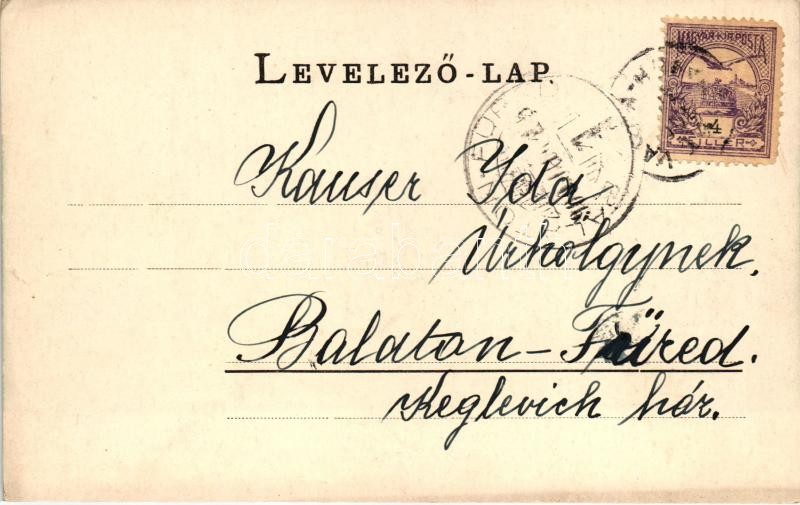 MAGYAR·KIR·POSTA
LEVELEZŐ-LAP.
4
FILLÉR
Kauser Ida
Úrhölgynek,
Balaton-Füred.
Keglevich ház.